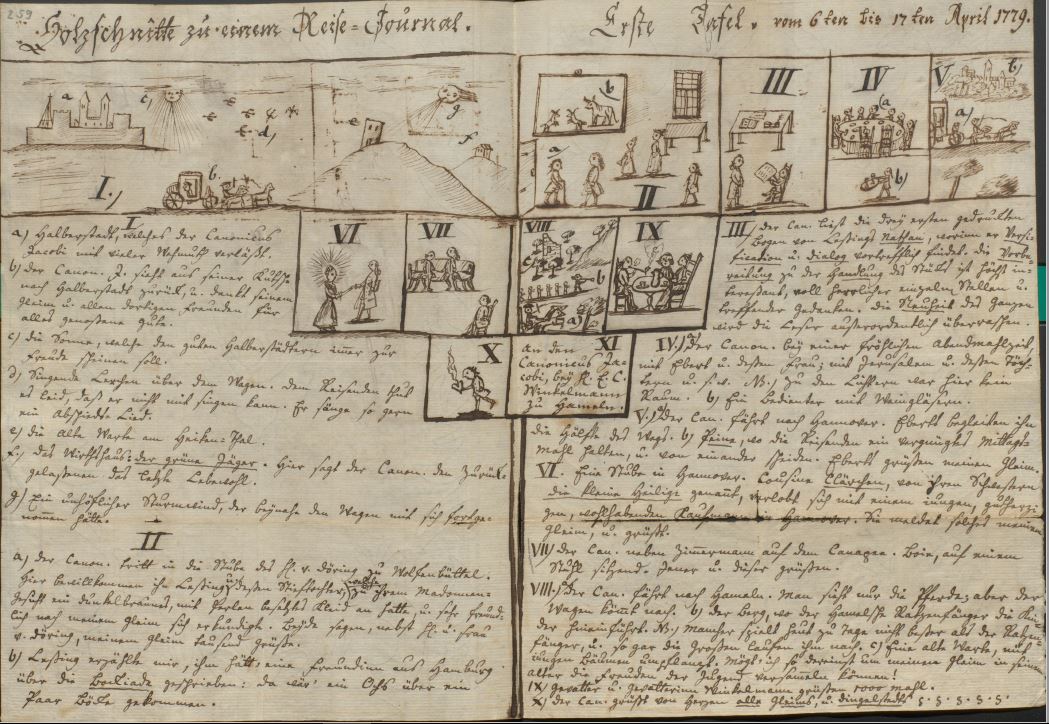 259
Holzschnitte zu einem Reise=Journal. Erste Tafel. vom 6ten bis 17ten April 1779.
a c) d) b. I.) e g f
b a II
III
IV (a b)
V a) b)
VI
VII
VIII c b a)
IX
X
XI
an den
Canonicus Ja-
cobi, bey H. E. C.
Winkelmann
zu Hameln.
I
a) Halberstadt, welches der Canonicus
Jacobi mit vieler Wehmuth verläßt.
b) der Canon. J. sieht aus seiner Kutsche
nach Halberstadt zurück, u. denkt seinem
Gleim u. allen dortigen Freunden für
alles genoßene gute.
c) die Sonne, welche den guten Halberstädtern immer zur
Freude scheinen soll.
d) Singende Lerchen über dem Wagen. dem Reisenden thut
es leid, daß er nicht mit singen kann. Er sänge so gern
ein Abschieds Lied.
e) die alte Warte am Heiken=Thal.
f.) das Wirthshaus: der grüne Jäger. Hier sagt der Canon. den zurück
gelaßenen das letzte Lebewohl.
g) Ein unhöflicher Sturmwind, der beynahe den Wagen mit sich fortge-
nommen hätte.
II
a) der Canon. tritt in die Stube des H. v. Döring zu Wolfenbüttel.
Hier bewillkommen ihn Leßing u. deßen Stieftochter, welche zu ihrem Madonnen-
gesicht ein dunkelbraunes, mit Perlen besetztes Kleid an hatte, u. sehr freund-
lich nach meinem Gleim sich erkundigte. Beyde sagen, nebst H. u. Frau
v. Döring, meinem Gleim tausend Grüße.
b) Leßing erzählte mir, ihm hätte eine Freundinn aus Hamburg
über die Bockiade geschrieben: da wär' ein Ochs über ein
Paar Böcke gekommen.
III der Can. liest die drey ersten gedruckten
Bogen von Leßings Nathan, worinn er Versi-
fication u. Dialog vortrefflich findet. die Vorbe-
reitung zu der Handlung des Stücks ist höchst in-
tereßant, voll herrlicher einzeln Stellen u.
treffender Gedanken. die Neuheit des Ganzen
wird die Leser außerordentlich überraschen.
IV.) a) der Canon. bey einer fröhlichen Abendmahlzeit,
mit Ebert u. deßen Frau; mit Jerusalem u. deßen Töch-
tern u. s. w. NB.) zu den Lichtern war hier kein
Raum. b) Ein Bedienter mit Weingläsern.
V.) a) der Can. fährt nach Hannover. Eberts begleiten ihn
die Hälfte des Wegs. b) Peine, wo die Reisenden ein vergnügtes Mittags
Mahl halten, u. von einander scheiden. Eberts grüßen meinen Gleim.
VI. Eine Stube in Hannover. Cousine Clärchen, von ihren Schwestern
die kleine Heilige genannt, verlobt sich mit einem jungen, gutherzi-
gen, wohlhabenden Kaufmann in Hannover. Sie meldet solches meinem
Gleim, u. grüßt.
VII) der Can. neben Zimmermann auf dem Canapee. Boie, auf einem
Stuhl sitzend. Jener u. dieser grüßen.
VIII.) a) der Can. fährt nach Hameln. Man sieht nur die Pferde; aber der
Wagen kömmt nach. b) der Berg, wo der Hamelsche Ratzenfänger die Kin-
der hineinführt. NB.) Mancher spielt heut zu Tage nicht beßer als der Ratzen-
fänger, u. so gar die Großen laufen ihm nach. c) Eine alte Warte, mit
jungen Bäumen umpflanzt. Mögt' ich so dereinst um meinen Gleim in seinem
Alter die Freuden der Jugend versammeln können!
IX) Gevatter u. Gevatterinn Winkelmann grüßen 1000 mahl.
X) der Can. grüßt von Herzen alle Gleims, u. Dingelstedt